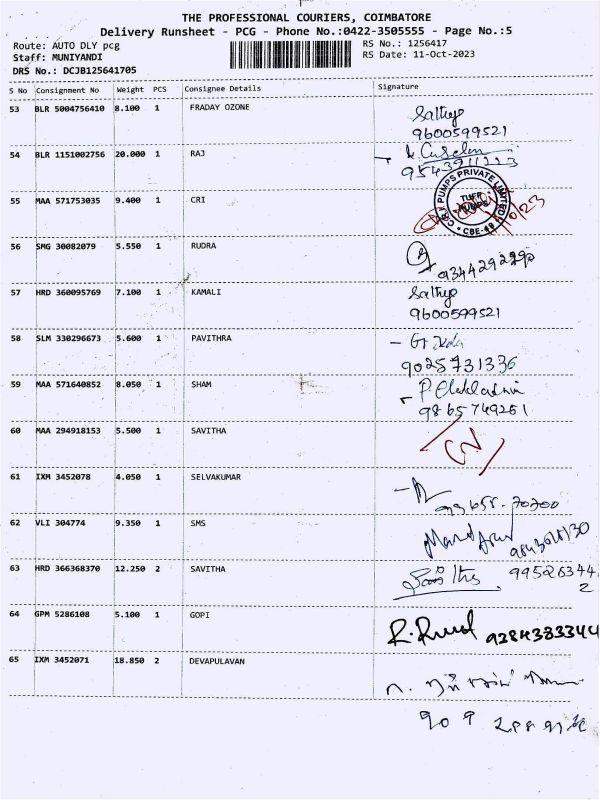 THE PROFESSIONAL COURIERS, COIMBATORE
Delivery Runsheet - PCG - Phone No.:0422-3505555 - Page No.:5
Route: AUTO DLY pcg
RS No.: 1256417
Staff: MUNIYANDI
RS Date: 11-Oct-2023
DRS No.: DCJB125641705
S No Consignment No Weight PCS Consignee Details Signature
53 BLR 5004756410 8.100 1 FRADAY OZONE
9600599521
54 BLR 1151002756 20.000 1 RAJ
55 MAA 571753035 9.400 1 CRI
C.R.I PUMPS PRIVATE LIMITED
CBE-49
56 SMG 30082079 5.550 1 RUDRA
57 HRD 360095769 7.100 1 KAMALI
9600599521
58 SLM 330296673 5.600 1 PAVITHRA
9025731336
59 MAA 571640852 8.050 1 SHAM
9865749251
60 MAA 294918153 5.500 1 SAVITHA
61 IXM 3452078 4.050 1 SELVAKUMAR
62 VLI 304774 9.350 1 SMS
63 HRD 366368370 12.250 2 SAVITHA
995263442
64 GPM 5286108 5.100 1 GOPI
9284383344
65 IXM 3452071 18.850 2 DEVAPULAVAN